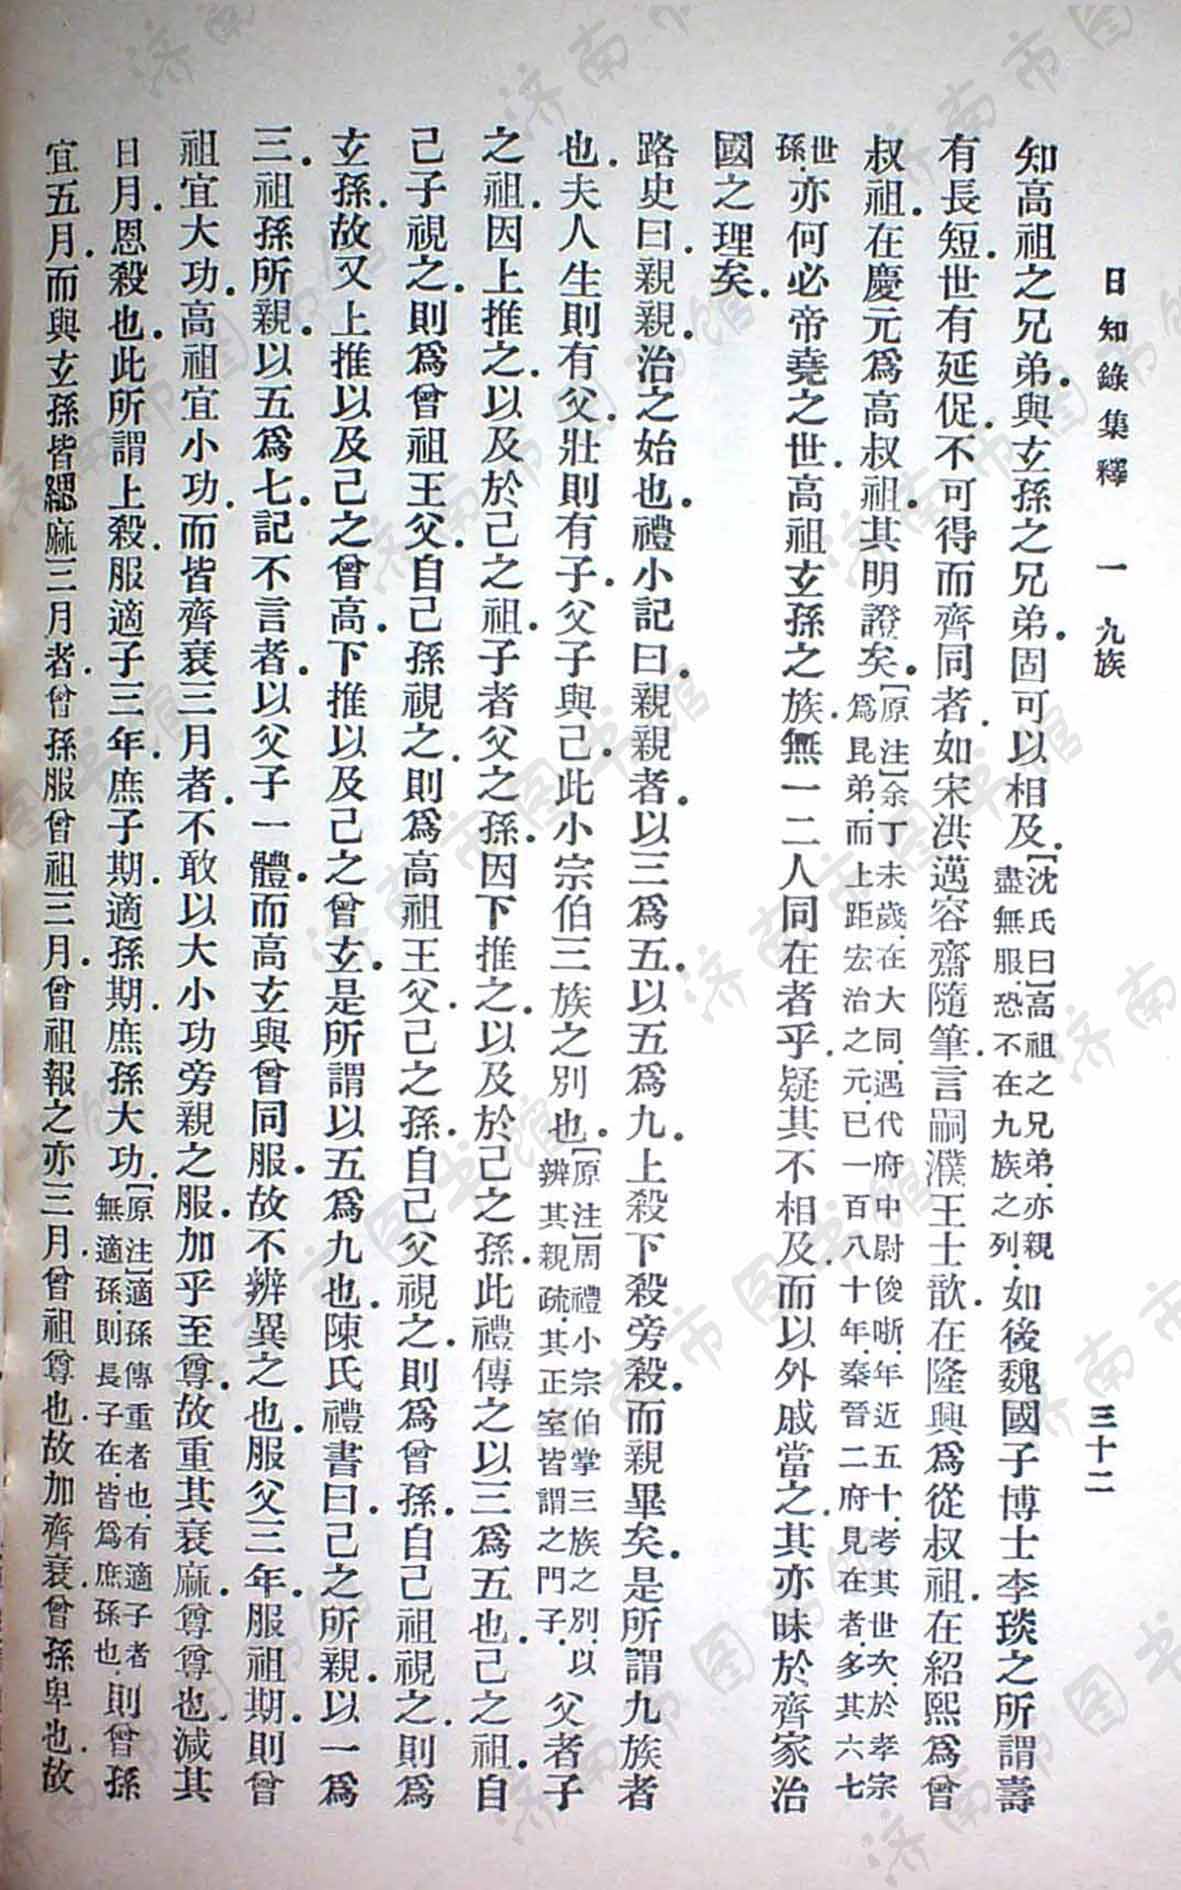 日知錄集釋　一　九族　三十二
知高祖之兄弟.與玄孫之兄弟.固可以相及.[沈氏曰]高祖之兄弟.亦親盡無服.恐不在九族之列.如後魏國子博士李琰之所謂壽
有長短.世有延促.不可得而齊同者.如宋洪邁容齋隨筆.言嗣濮王士歆.在隆興爲從叔祖.在紹熙爲曾
叔祖.在慶元爲高叔祖.其明證矣.[原注]余丁未歲.在大同.遇代府中尉俊晣.年近五十.考其世次.於孝宗爲昆弟.而上距宏治之元.已一百八十年.秦晉二府見在者.多其六七
世孫.亦何必帝堯之世.高祖玄孫之族.無一二人同在者乎.疑其不相及.而以外戚當之.其亦昧於齊家治
國之理矣.
路史曰.親親.治之始也.禮小記曰.親親者.以三爲五.以五爲九.上殺下殺旁殺.而親畢矣.是所謂九族者
也.夫人生則有父.壯則有子.父子與己.此小宗伯三族之別也.[原注]周禮小宗伯掌三族之別.以辨其親疏.其正室皆謂之門子.父者子
之祖.因上推之.以及於己之祖.子者父之孫.因下推之.以及於己之孫.此禮傳之以三爲五也.己之祖.自
己子視之.則爲曾祖王父.自己孫視之.則爲高祖王父.己之孫.自己父視之.則爲曾孫.自己祖視之.則爲
玄孫.故又上推以及己之曾高.下推以及己之曾玄.是所謂以五爲九也.陳氏禮書曰.己之所親.以一爲
三.祖孫所親.以五爲七.記不言者.以父子一體.而高玄與曾同服.故不辨異之也.服父三年.服祖期.則曾
祖宜大功.高祖宜小功.而皆齊衰三月者.不敢以大小功旁親之服.加乎至尊.故重其衰麻.尊尊也.減其
日月.恩殺也.此所謂上殺.服適子三年.庶子期.適孫期.庶孫大功.[原注]適孫傳重者也.有適子者無適孫.則長子在.皆爲庶孫也.則曾孫
宜五月.而與玄孫皆緦麻三月者.曾孫服曾祖三月.曾祖報之亦三月.曾祖尊也.故加齊衰.曾孫卑也.故